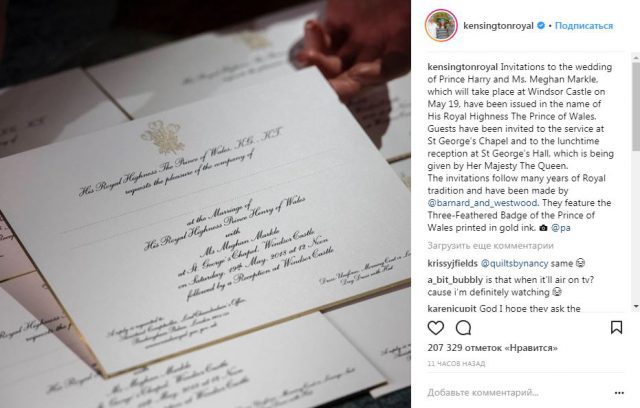 His Royal Highness The Prince of Wales, KG., KT.
requests the pleasure of the company of
at the Marriage of
His Royal Highness Prince Henry of Wales
with
Ms. Meghan Markle
at St. George's Chapel, Windsor Castle
on Saturday, 19th May, 2018 at 12 Noon
followed by a Reception at Windsor Castle
A reply is requested to:
Buckingham Palace, London
Day Dress with Hat
kensingtonroyal • Подписаться
kensingtonroyal Invitations to the wedding
of Prince Harry and Ms. Meghan Markle,
which will take place at Windsor Castle on
May 19, have been issued in the name of
His Royal Highness The Prince of Wales.
Guests have been invited to the service at
St George's Chapel and to the lunchtime
reception at St George's Hall, which is being
given by Her Majesty The Queen.
The invitations follow many years of Royal
tradition and have been made by
@barnard_and_westwood. They feature the
Three-Feathered Badge of the Prince of
Wales printed in gold ink. 📷 @pa
Загрузить еще комментарии
krissyjfields @quiltsbynancy same
a_bit_bubbly is that when it'll air on tv?
cause i'm definitely watching
karenicupit God I hope they ask the
207 329 отметок «Нравится»
11 ЧАСОВ НАЗАД
Добавьте комментарий...